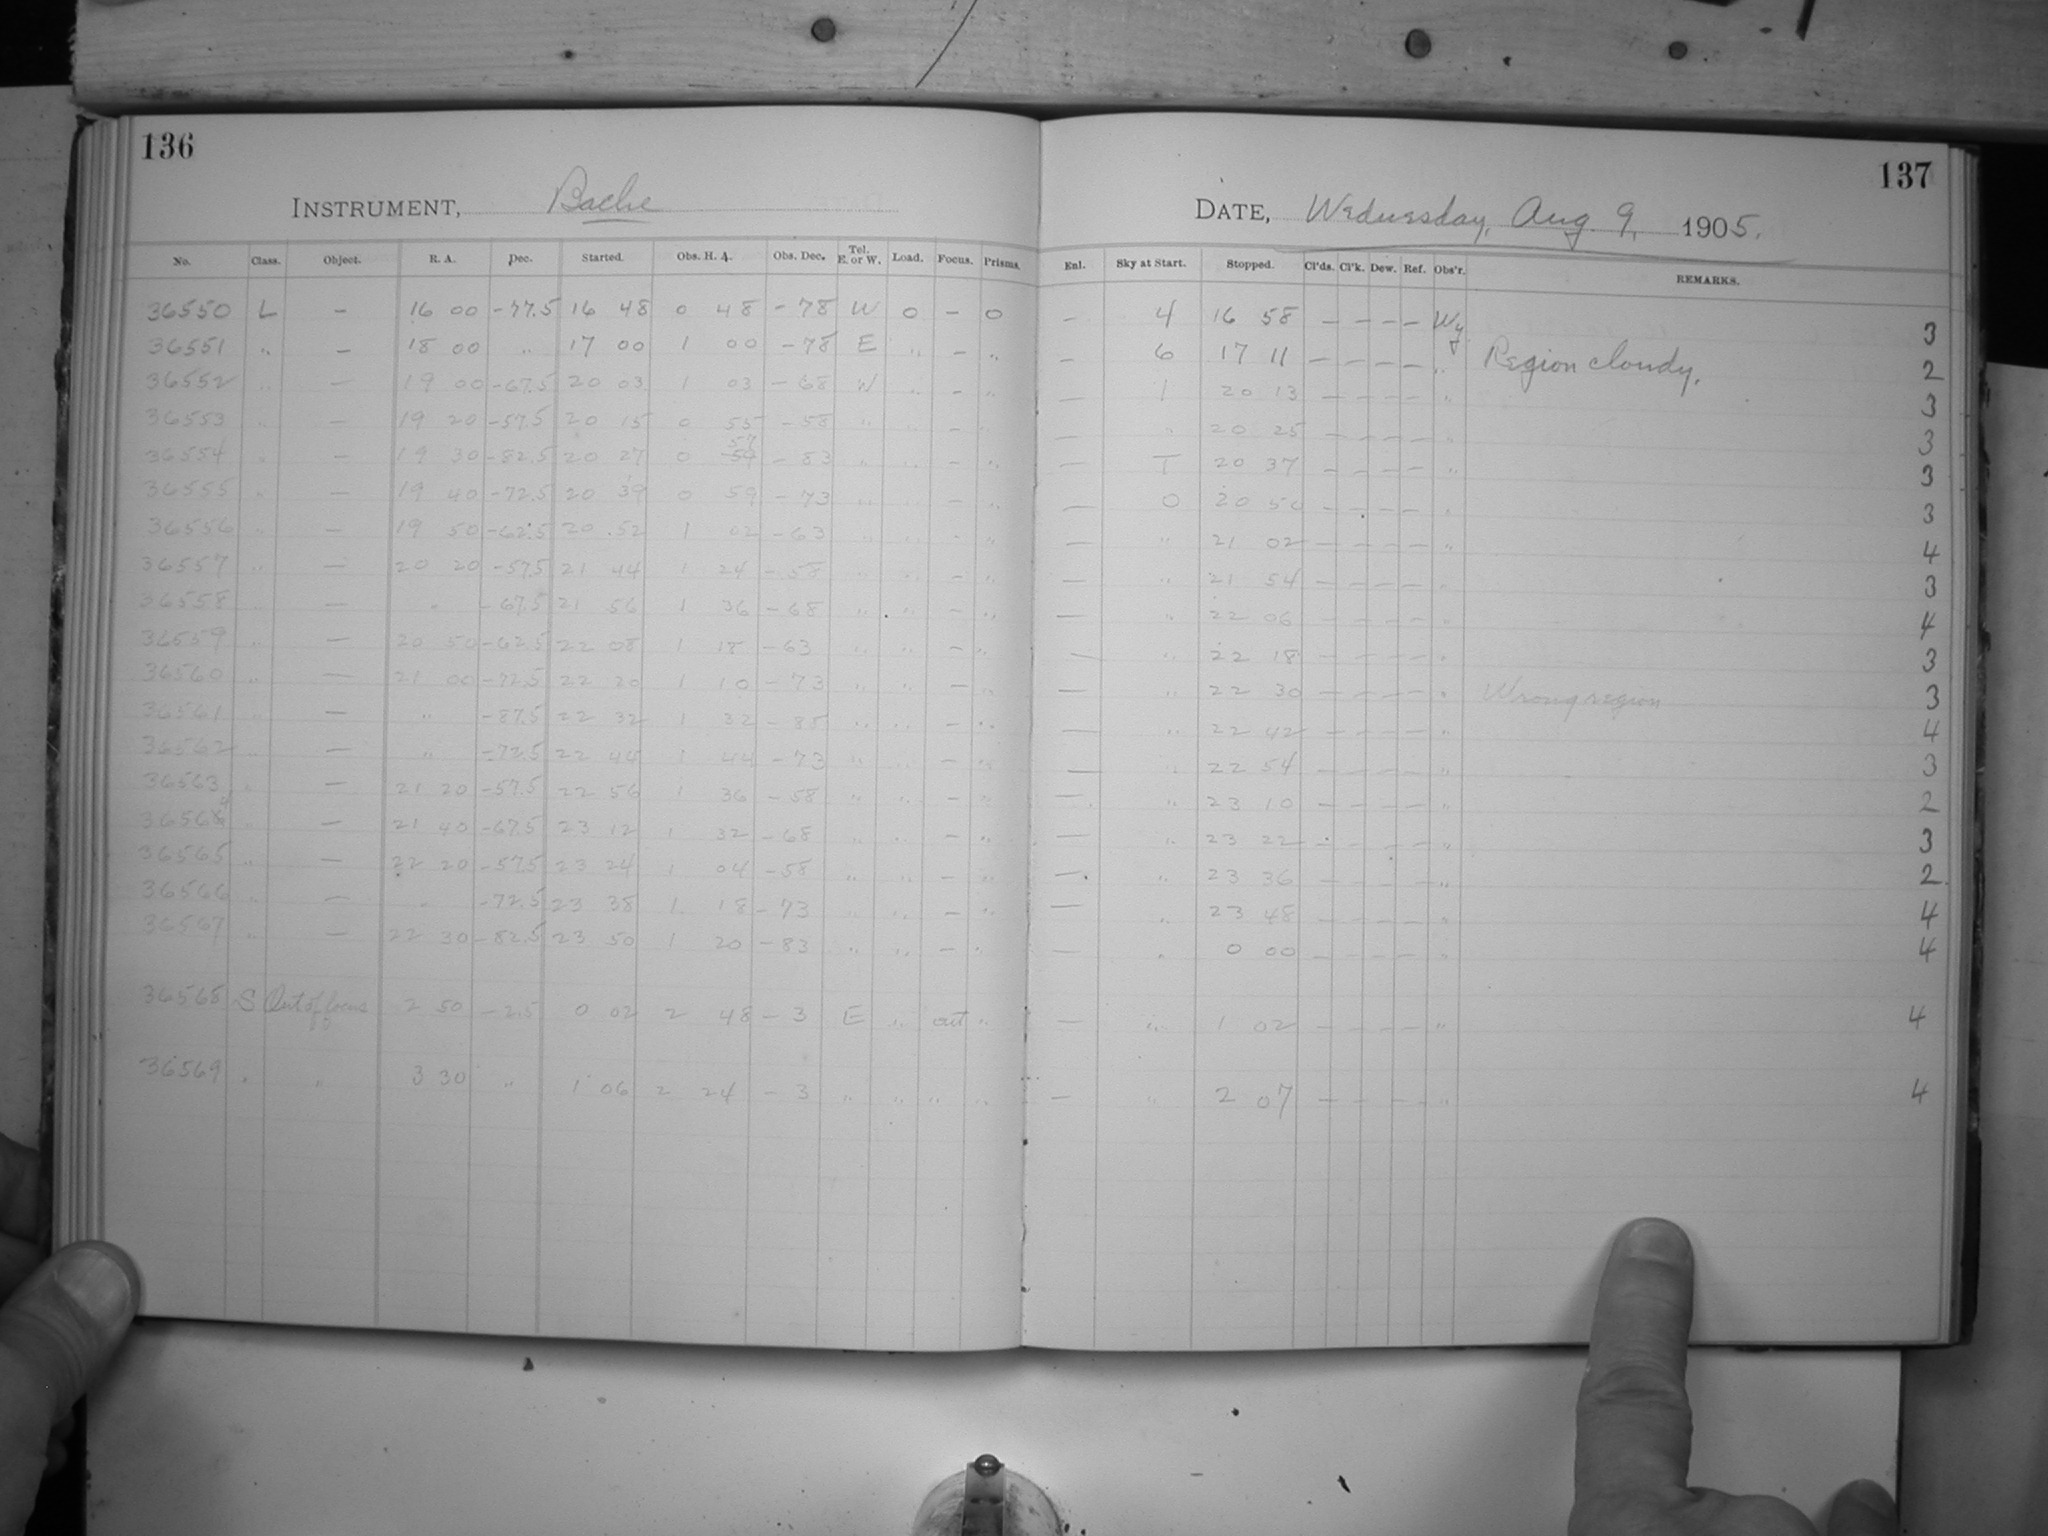 136
INSTRUMENT, Bache
No. Class. Object. R. A. Dec. Started. Obs. H. A. Obs. Dec. Tel. E. or W. Load. Focus. Prisms.
36550 L — 16 00 -77.5 16 48 0 48 -78 W 0 — 0
36551 " — 18 00 " 17 00 1 00 -78 E " — "
36552 " — 19 00 -67.5 20 03 1 03 -68 W " — "
36553 " — 19 20 -57.5 20 15 0 55 -58 " " — "
36554 " — 19 30 -82.5 20 27 0 57 -83 " " — "
36555 " — 19 40 -72.5 20 39 0 59 -73 " " — "
36556 " — 19 50 -62.5 20 52 1 02 -63 " " — "
36557 " — 20 20 -57.5 21 44 1 24 -58 " " — "
36558 " — " -67.5 21 56 1 36 -68 " " — "
36559 " — 20 50 -62.5 22 08 1 18 -63 " " — "
36560 " — 21 00 -72.5 22 20 1 10 -73 " " — "
36561 " — " -87.5 22 32 1 32 -88 " " — "
36562 " — " -72.5 22 44 1 44 -73 " " — "
36563 " — 21 20 -57.5 22 56 1 36 -58 " " — "
36564 " — 21 40 -67.5 23 12 1 32 -68 " " — "
36565 " — 22 20 -57.5 23 24 1 04 -58 " " — "
36566 " — " -72.5 23 38 1 18 -73 " " — "
36567 " — 22 30 -82.5 23 50 1 20 -83 " " — "
36568 S Out of focus 2 50 -2.5 0 02 2 48 -3 E " out "
36569 " " 3 30 " 1 06 2 24 -3 " " " "
137
DATE, Wednesday, Aug. 9, 1905.
Enl. Sky at Start. Stopped. Cl'ds. Cl'k. Dew. Ref. Obs'r. REMARKS.
— 4 16 58 — — — — Wy. 3
— 6 17 11 — — — — " Region cloudy. 2
— 1 20 13 — — — — " 3
— " 20 25 — — — — " 3
— T 20 37 — — — — " 3
— 0 20 50 — — — — " 3
— " 21 02 — — — — " 4
— " 21 54 — — — — " 3
— " 22 06 — — — — " 4
— " 22 18 — — — — " 3
— " 22 30 — — — — " Wrong region 3
— " 22 42 — — — — " 4
— " 22 54 — — — — " 3
— " 23 10 — — — — " 2
— " 23 22 — — — — " 3
— " 23 36 — — — — " 2
— " 23 48 — — — — " 4
— " 0 00 — — — — " 4
— " 1 02 — — — — " 4
— " 2 07 — — — — " 4